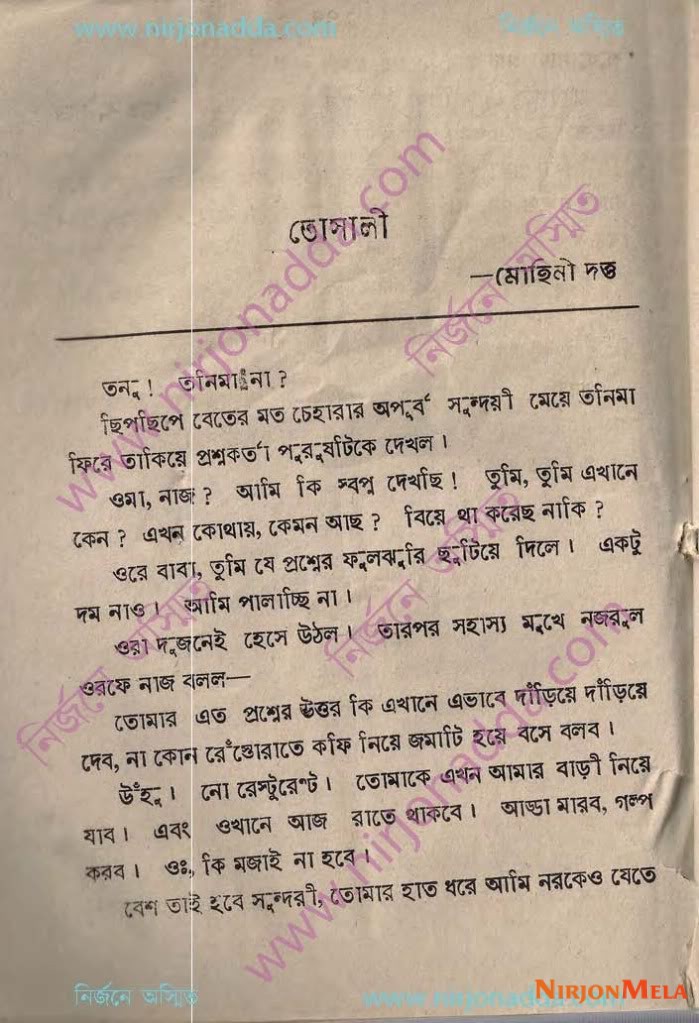 www.nirjonadda.com নির্জনে অস্মিত
তোসালী
—মোহিনী দত্ত
তনু ! তনিমা না ?
ছিপছিপে বেতের মত চেহারার অপূর্ব সুন্দরী মেয়ে তনিমা
ফিরে তাকিয়ে প্রশ্নকর্তা পুরুষটিকে দেখল ।
ওমা, নাজ ? আমি কি স্বপ্ন দেখছি ! তুমি, তুমি এখানে
কেন ? এখন কোথায়, কেমন আছ ? বিয়ে থা করেছ নাকি ?
ওরে বাবা, তুমি যে প্রশ্নের ফুলঝুরি ছুটিয়ে দিলে । একটু
দম নাও । আমি পালাচ্ছি না ।
ওরা দুজনেই হেসে উঠল । তারপর সহাস্য মুখে নজরুল
ওরফে নাজ বলল—
তোমার এত প্রশ্নের উত্তর কি এখানে এভাবে দাঁড়িয়ে দাঁড়িয়ে
দেব, না কোন রেঁস্তোরাতে কফি নিয়ে জমাটি হয়ে বসে বলব ।
উঁহু । নো রেস্টুরেণ্ট । তোমাকে এখন আমার বাড়ী নিয়ে
যাব । এবং ওখানে আজ রাতে থাকবে । আড্ডা মারব, গল্প
করব । ওঃ, কি মজাই না হবে ।
বেশ তাই হবে সুন্দরী, তোমার হাত ধরে আমি নরকেও যেতে
www.nirjonadda.com
নির্জনে অস্মিত
নির্জনে অস্মিত
নির্জনে অস্মিত
www.nirjonadda.com
নির্জনে অস্মিত www.nirjonadda.com
NIRJONMELA